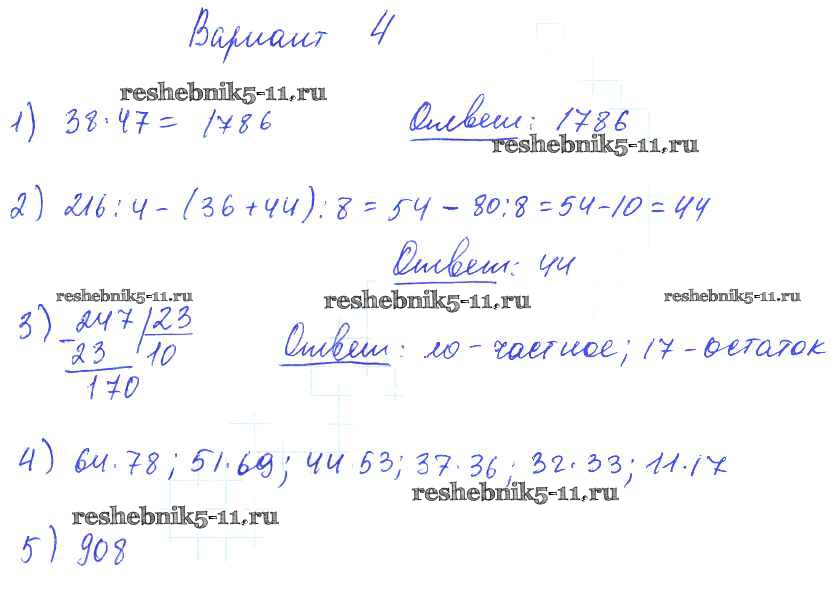 Вариант 4
reshebnik5-11.ru
1) 38·47= 1786 Ответ: 1786
reshebnik5-11.ru
2) 216:4-(36+44):8=54-80:8=54-10=44
Ответ: 44
reshebnik5-11.ru reshebnik5-11.ru reshebnik5-11.ru
3) 247 | 23
- 23 10
170
Ответ: 10-частное; 17-остаток
4) 64·78; 51·69; 44 53; 37·36; 32·33; 11·17
reshebnik5-11.ru
reshebnik5-11.ru
5) 908